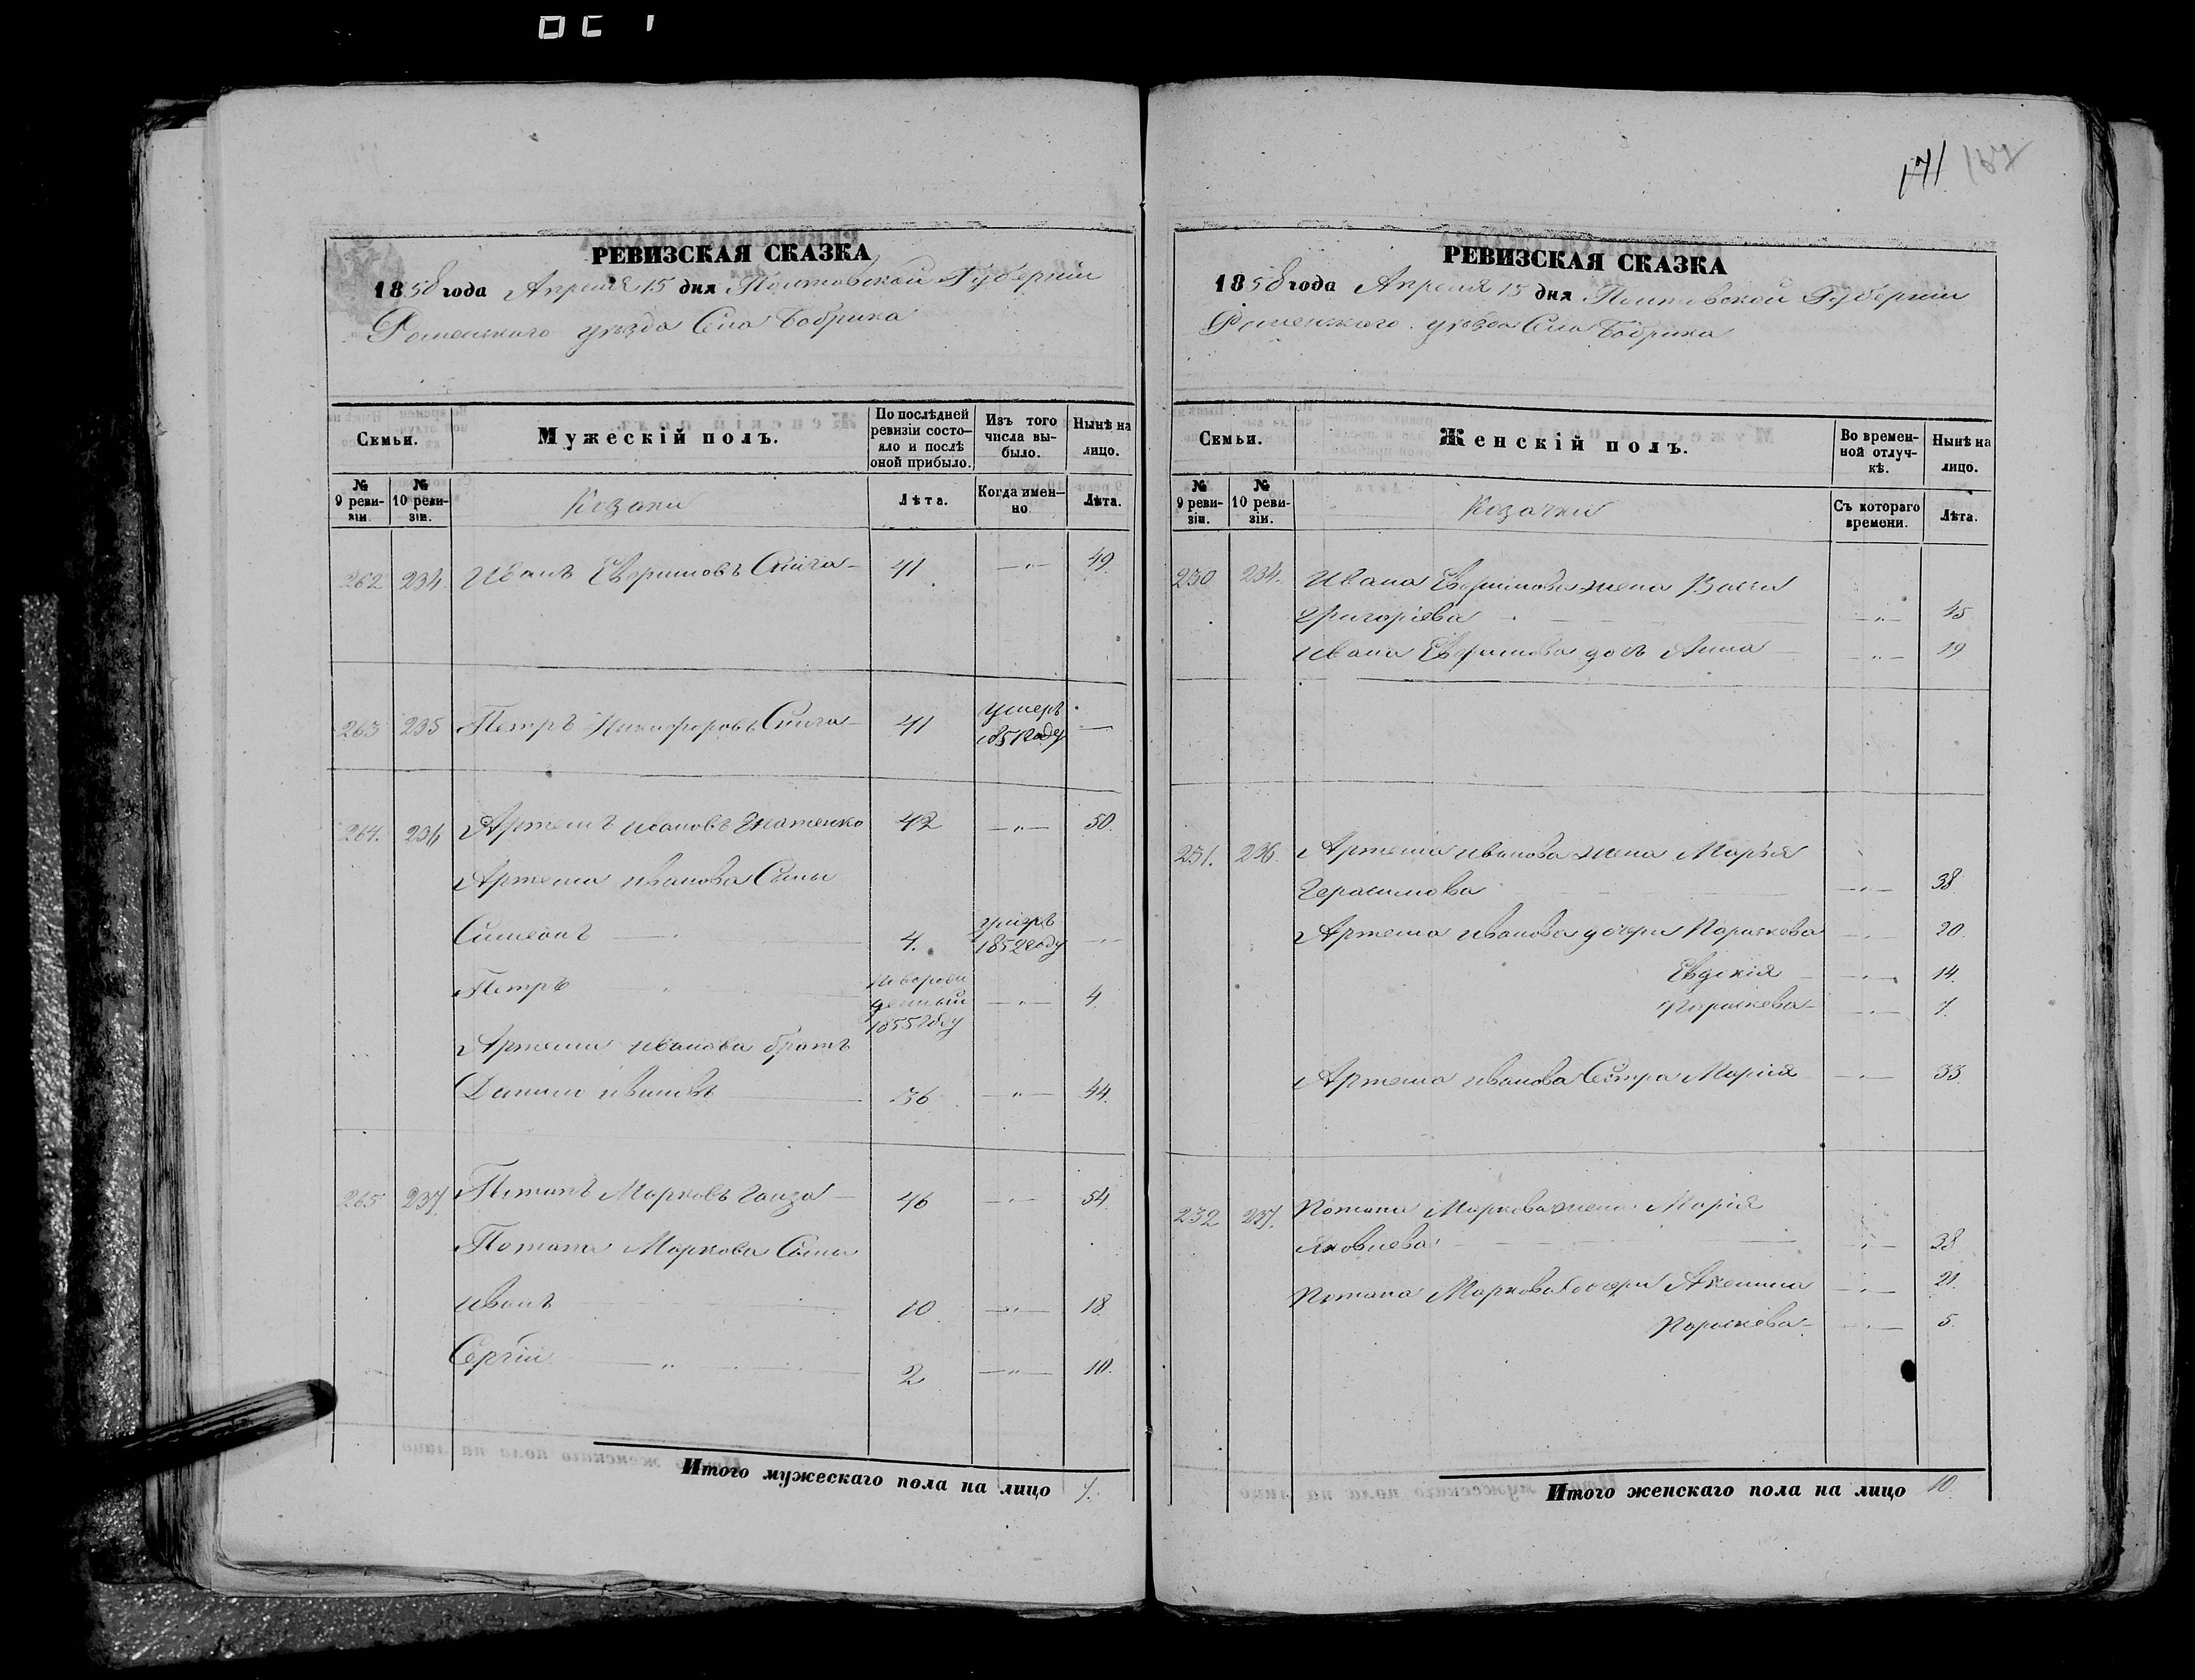 171 167
РЕВИЗСКАЯ СКАЗКА
1858 года Апреля 15 дня Полтавской Губерніи
Роменскаго уѣзда Села Бобрика
Семьи.
Мужескій полъ.
По послѣдней ревизіи состояло и послѣ оной прибыло.
Изъ того числа выбыло.
Нынѣ на лицо.
№ 9 ревизіи.
№ 10 ревизіи.
Козаки
Лѣта.
Когда именно
Лѣта.
262 234. Иванъ Евфимовъ 41 —„— 49
263 235 Петръ Никифоровъ 41 умеръ 1851 году —
264. 236 Артемъ Ивановъ Игнатенко 42 —„— 50.
Артема Иванова Сыны
Симеонъ 4. умеръ 1852 году —
Петръ новорожденный 1855 году —„— 4
Артема Иванова братъ
Данило Ивановъ 36 —„— 44.
265 237. Потапъ Марковъ 46 —„— 54.
Потапа Маркова Сыны
Иванъ 10 —„— 18.
Сергій 2 —„— 10.
Итого мужескаго пола на лицо 7.
РЕВИЗСКАЯ СКАЗКА
1858 года Апреля 15 дня Полтавской Губерніи
Роменскаго уѣзда Села Бобрика
Семьи.
Женскій полъ.
Во временной отлучкѣ.
Нынѣ на лицо.
№ 9 ревизіи.
№ 10 ревизіи.
Козачки
Съ котораго времени.
Лѣта.
230 234. Ивана Евфимова жена
Григоріева —„— 45
Ивана Евфимова дочь Анна —„— 19
231. 236. Артема Иванова жена Марія
Герасимова —„— 38
Артема Иванова дочери Параскева —„— 20.
Евдокія —„— 14.
Параскева —„— 7.
Артема Иванова Сестра Марія —„— 33.
232 237. Потапа Маркова жена Марія
Яковлева —„— 38
Потапа Маркова дочери Акелина —„— 21.
Параскева —„— 5.
Итого женскаго пола на лицо 10.